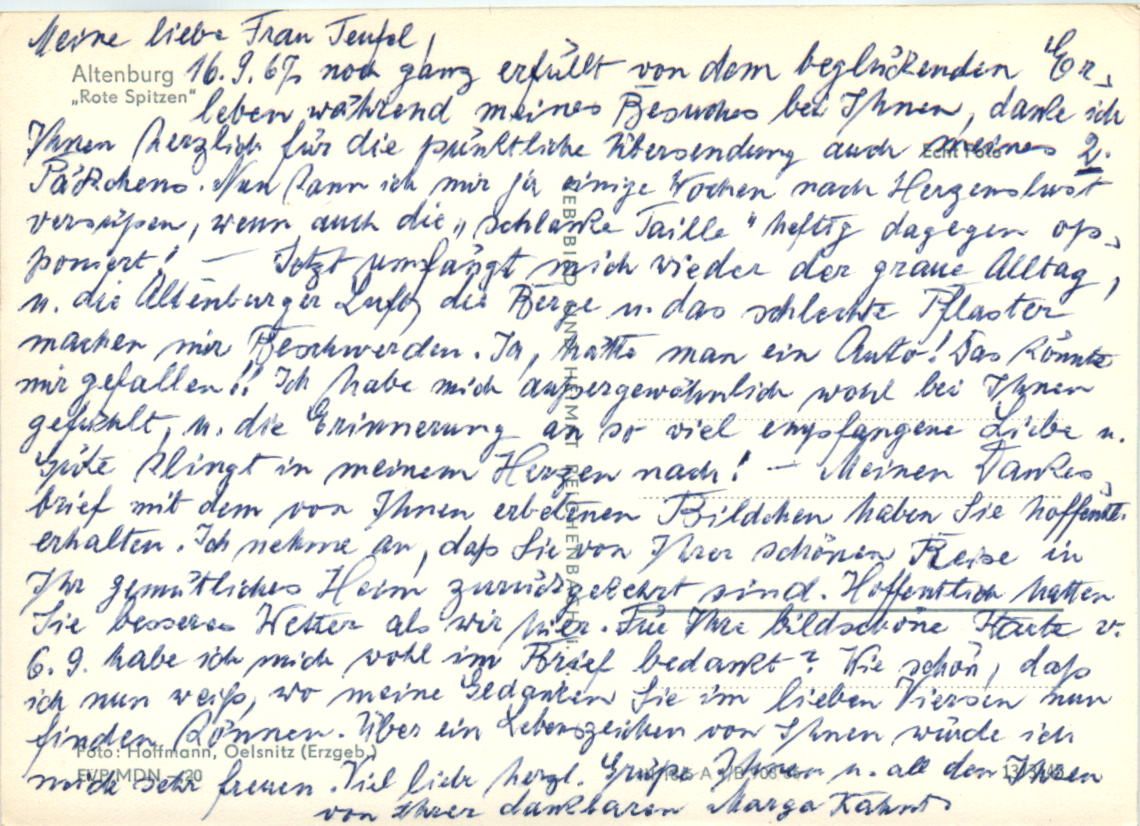 Meine liebe Frau Teufel,
Altenburg
„Rote Spitzen“
16.9.67, noch ganz erfüllt von dem beglückenden Er-
leben während meines Besuches bei Ihnen, danke ich
Ihnen herzlich für die pünktliche Übersendung auch meines 2.
Echt Foto
Päckchens. Nun kann ich mir ja einige Wochen nach Herzenslust
versüßen, wenn auch die „schlanke Taille“ heftig dagegen op-
poniert! — Jetzt umfängt mich wieder der graue Alltag,
u. die Altenburger Luft, die Berge u. das schlechte Pflaster
machen mir Beschwerden. Ja, hätte man ein Auto! Das könnte
mir gefallen!! Ich habe mich außergewöhnlich wohl bei Ihnen
gefühlt, u. die Erinnerung an so viel empfangene Liebe u.
Güte klingt in meinem Herzen nach! — Meinen Dankes-
brief mit dem von Ihnen erbetenen Bildchen haben Sie hoffentl.
erhalten. Ich nehme an, daß Sie von Ihrer schönen Reise in
Ihr gemütliches Heim zurückgekehrt sind. Hoffentlich hatten
Sie besseres Wetter als wir hier. Für Ihre bildschöne Karte v.
6.9. habe ich mich wohl im Brief bedankt? Wie schön, daß
ich nun weiß, wo meine Gedanken Sie im lieben Viersen nun
finden können. Über ein Lebenszeichen von Ihnen würde ich
Foto: Hoffmann, Oelsnitz (Erzgeb.)
mich sehr freuen. Viel liebe herzl. Grüße Ihnen u. all den Ihren
EVP MDN -,20
von Ihrer dankbaren Marga Kahnt
REICHENBACH